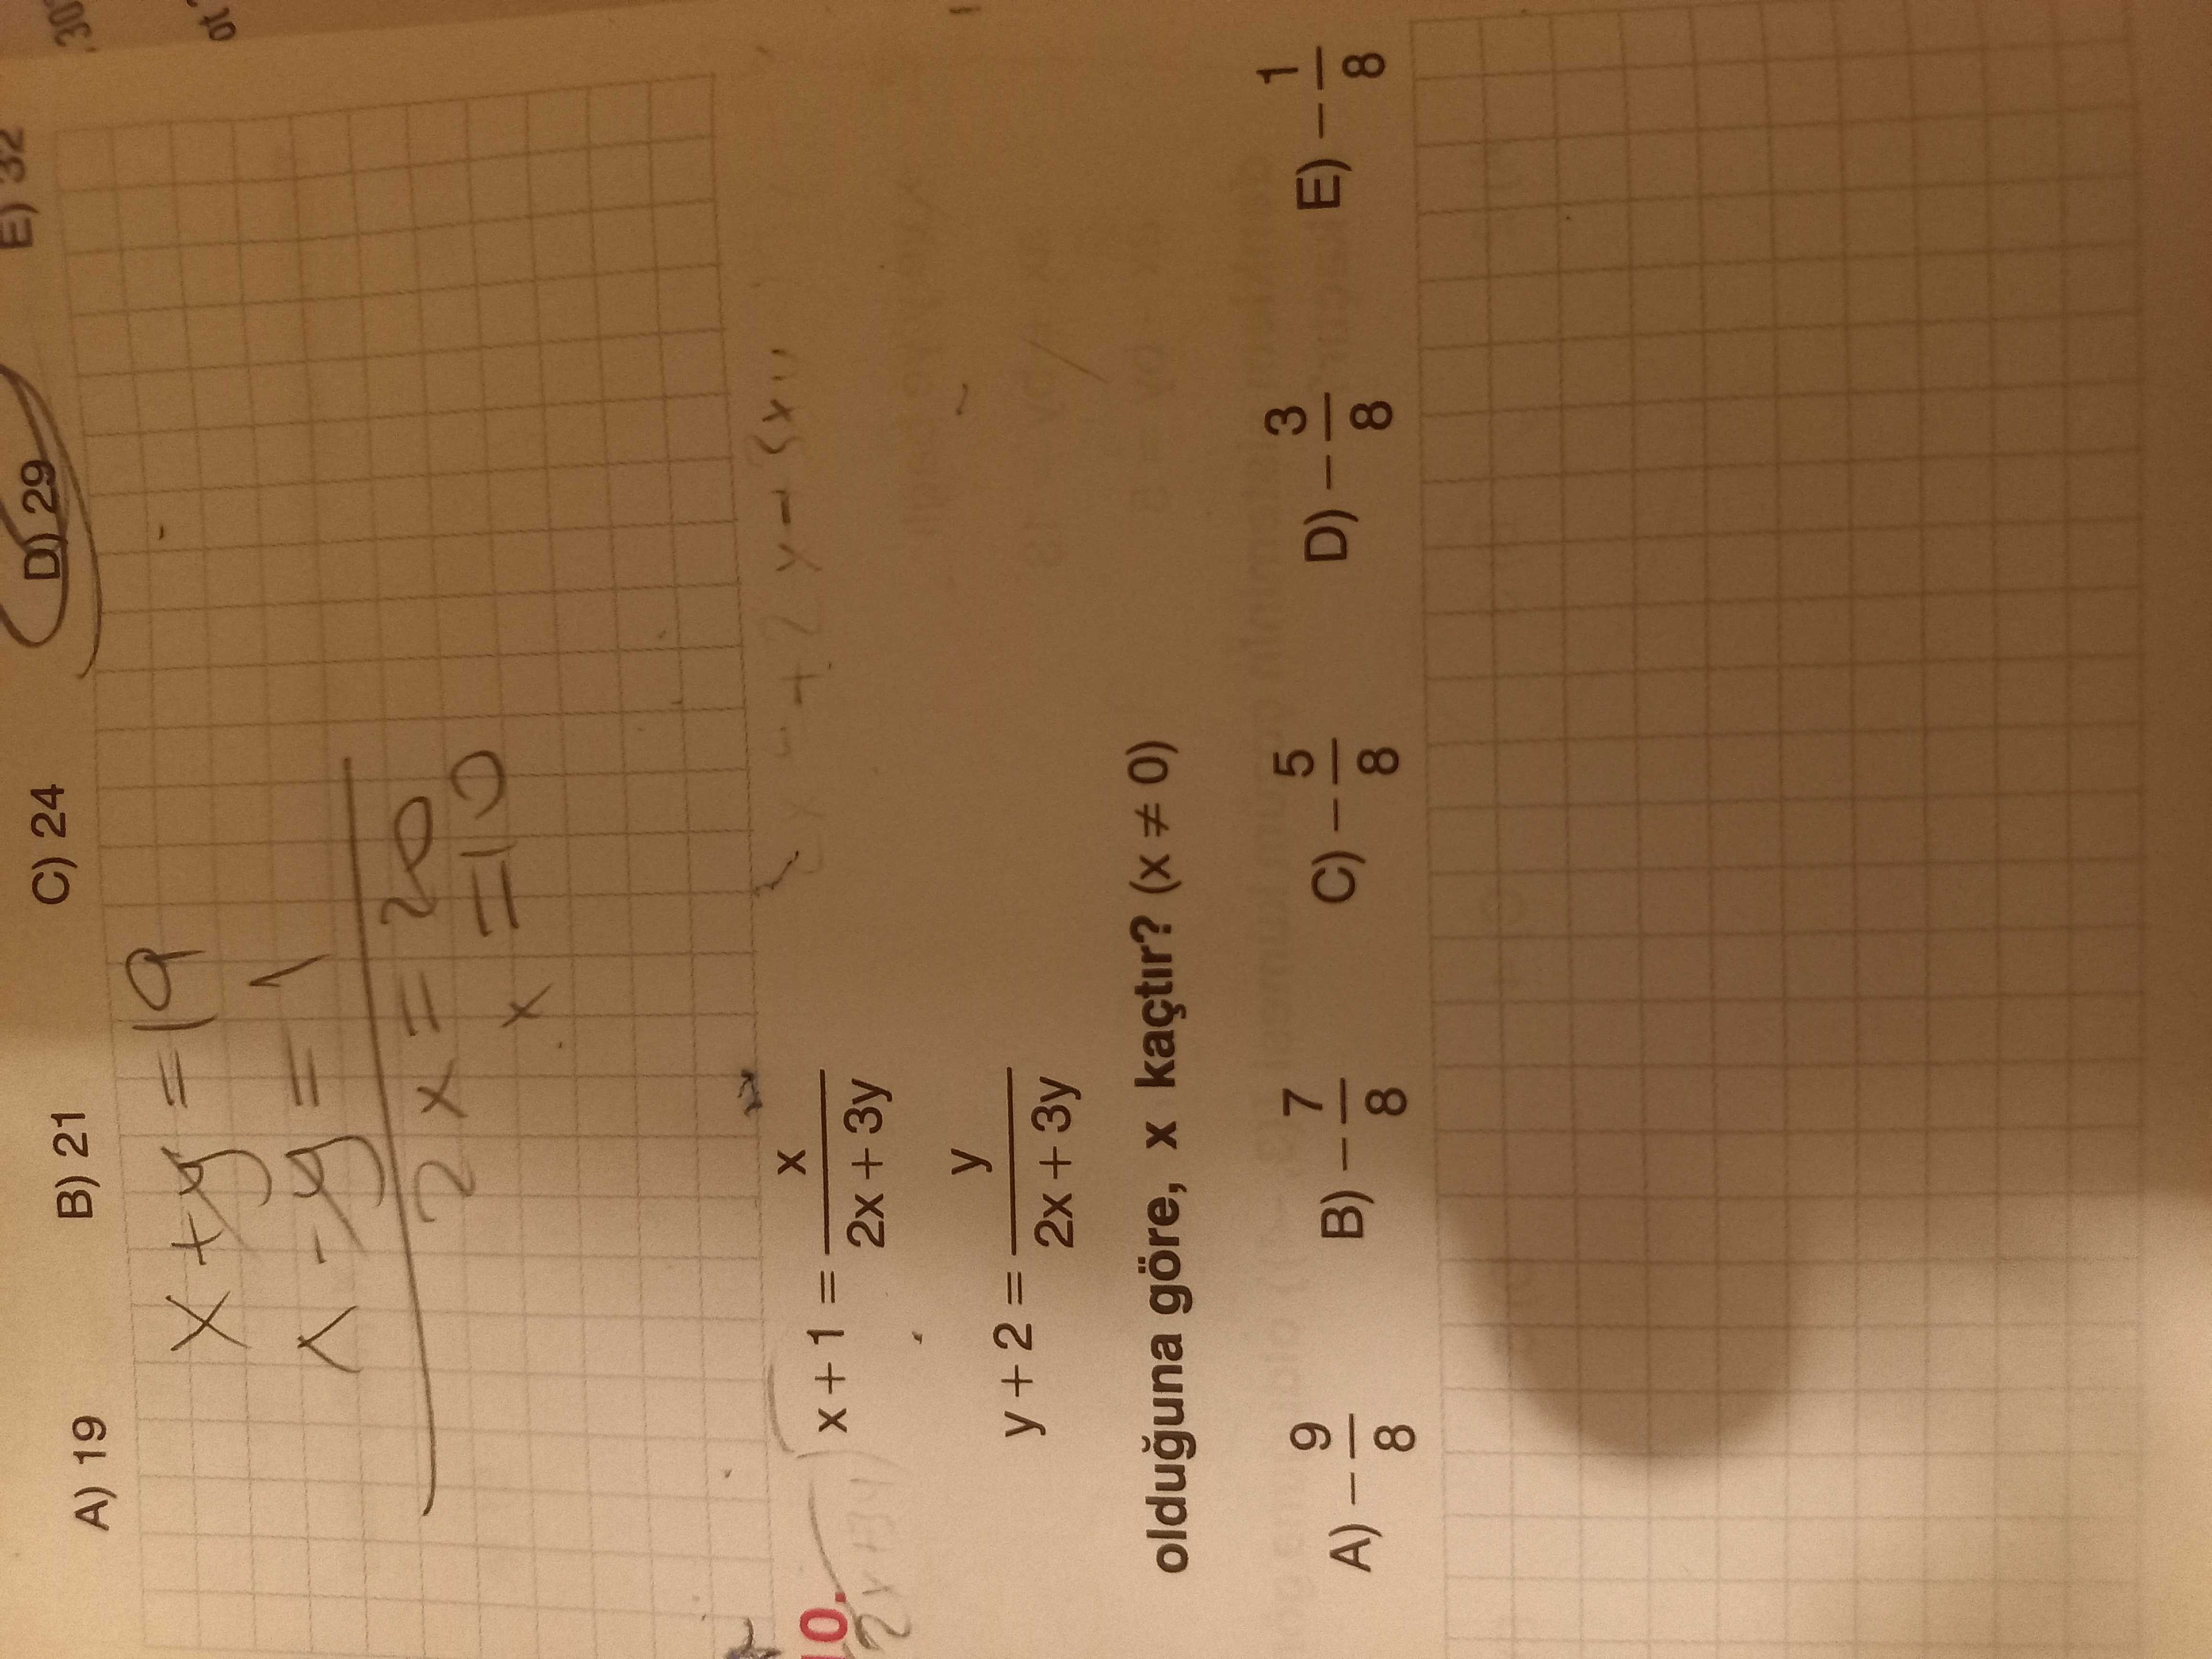 30
ot
A) 19 B) 21 C) 24 D) 29 E) 32
x + y = 19
x - y = 1
2x = 20
x = 10
10.
x + 1 = x / 2x + 3y
y + 2 = y / 2x + 3y
olduğuna göre, x kaçtır? (x ≠ 0)
A) -9/8 B) -7/8 C) -5/8 D) -3/8 E) -1/8